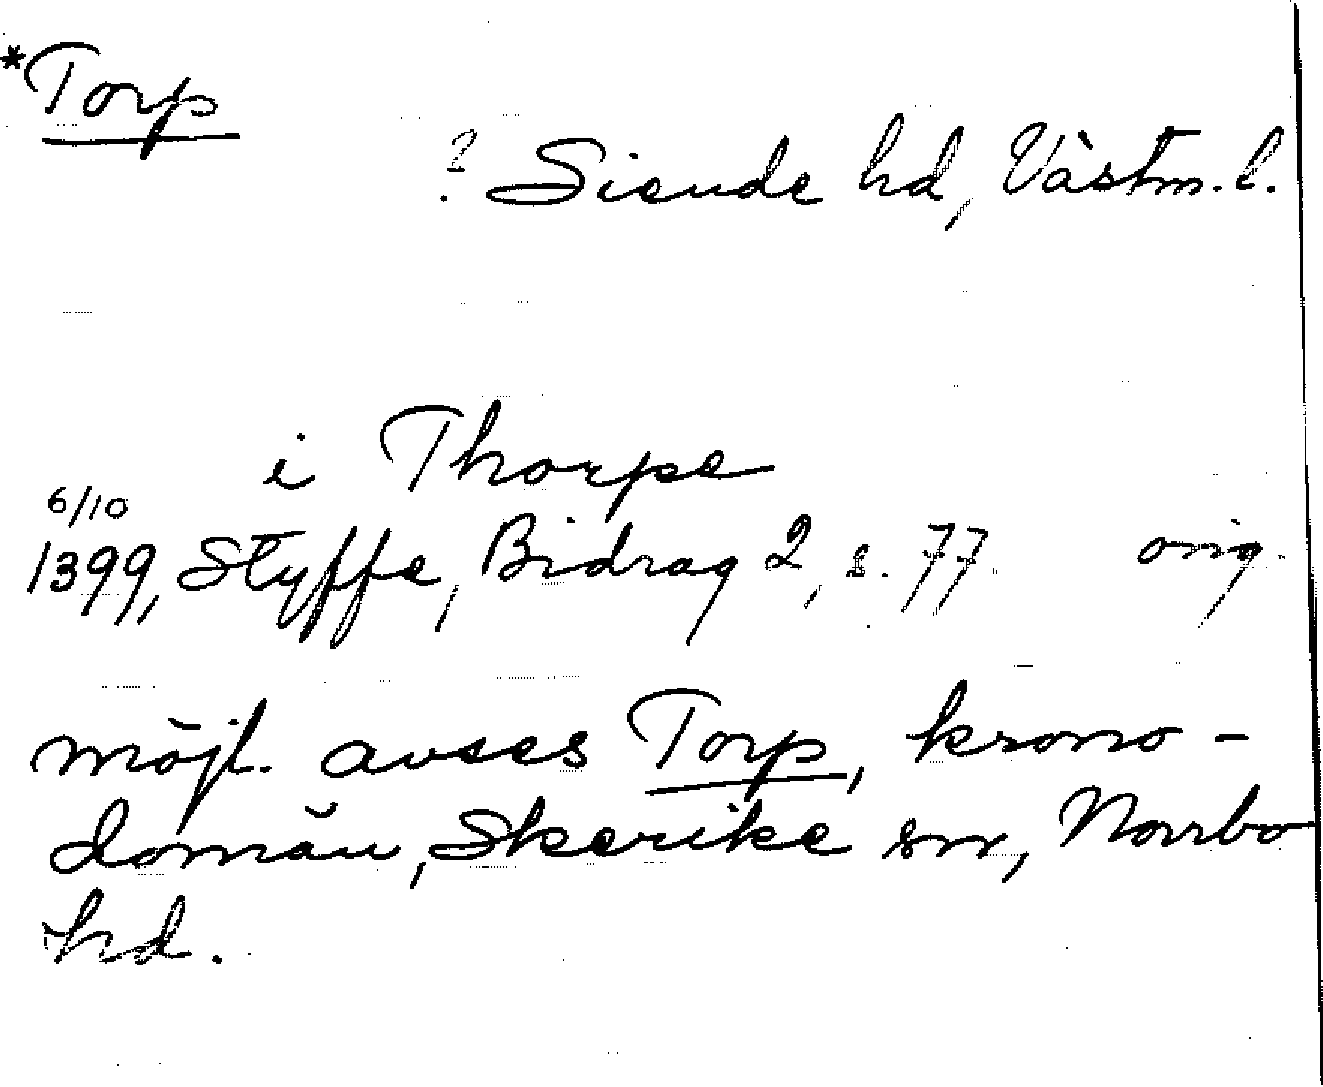 *Torp
? Siende hd, Västm. l.
i Thorpe
6/10
1399, Styffe, Bidrag 2, s. 77 orig.
möjl. avses Torp, krono-
domän, Skerike sn, Norrbo
hd.